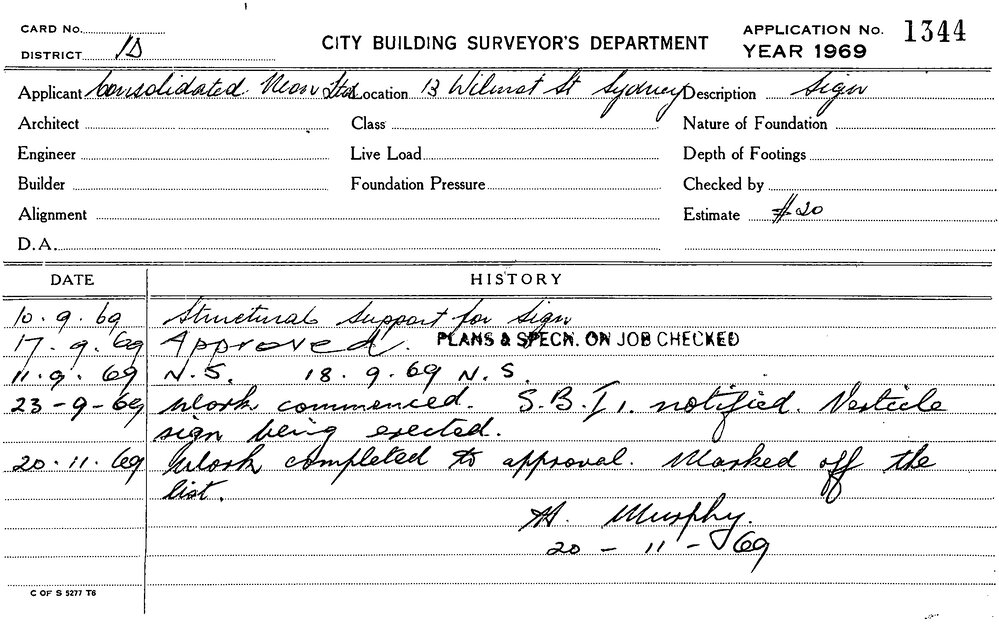 CARD No.
DISTRICT 1D
CITY BUILDING SURVEYOR'S DEPARTMENT
APPLICATION No. 1344
YEAR 1969
Applicant Consolidated Neon Ltd Location 13 Wilmot St Sydney Description Sign
Architect Class Nature of Foundation
Engineer Live Load Depth of Footings
Builder Foundation Pressure Checked by
Alignment Estimate $20
D.A.
DATE HISTORY
10.9.69 Structural Support for Sign
17.9.69 Approved. PLANS & SPECN. ON JOB CHECKED
11.9.69 N.S. 18.9.69 N.S.
23-9-69 Work commenced. S.B.I. notified. Verticle
sign being erected.
20.11.69 Work completed to approval. Marked off the
list.
H. Murphy.
20-11-69
C OF S 5277 T6